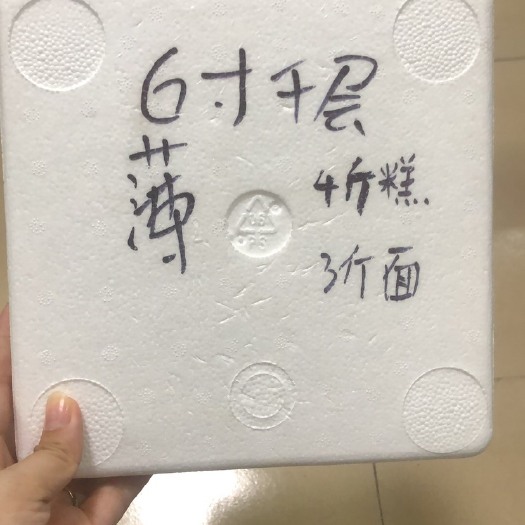 6寸千层
薄
4斤糕
3斤面